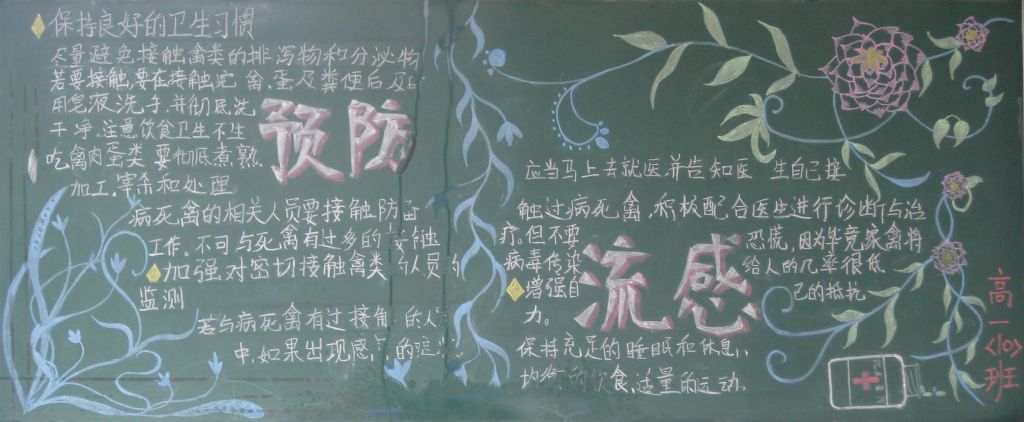 保持良好的卫生习惯
尽量避免接触禽类的排泻物和分泌物
若要接触,要在接触完禽、蛋及粪便后及
用皂液洗手,并彻底洗
干净.注意饮食卫生不生
吃禽肉蛋类,要彻底煮熟
加工.宰杀和处理
预防
病死禽的相关人员要接触防
工作。不可与死禽有过多的接触
加强对密切接触禽类 人员的
监测
若与病死禽有过接触 的人
中,如果出现感 的
应当马上去就医并告知医生自己接
触过病死禽,积极配合医生进行诊断与治
疗.但不要恐慌,因为毕竟家禽将
病毒传染给人的几率很低
增强自己的抵抗
力。
流感
保持充足的睡眠和休息、
均衡的饮食,适量的运动.
高一<10>班